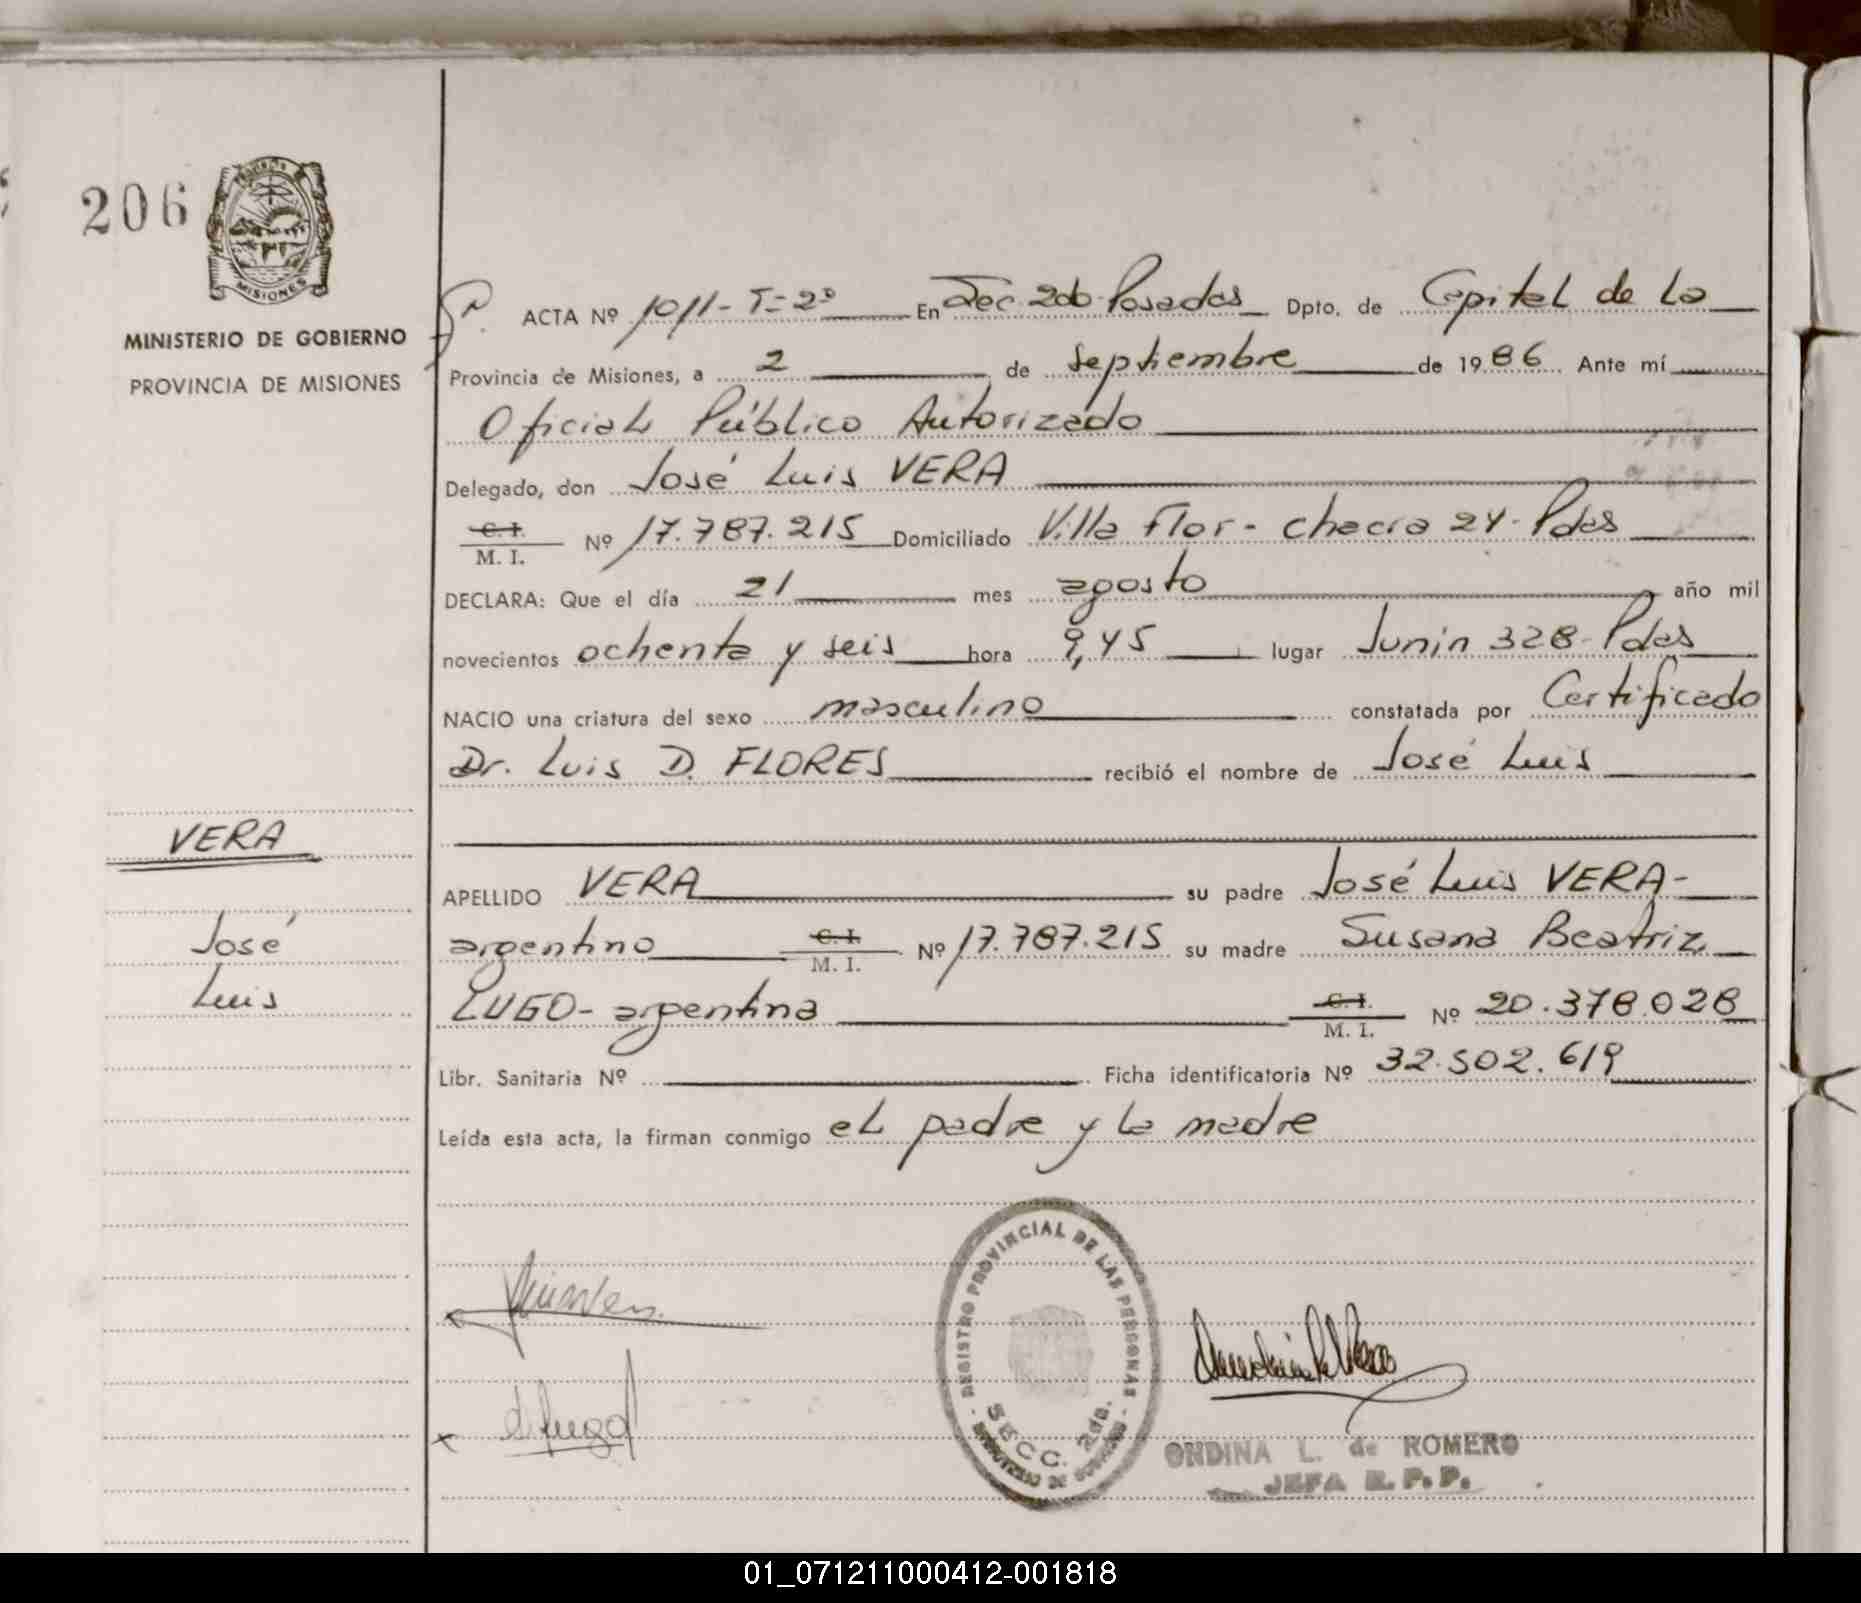 206
MISIONES
MINISTERIO DE GOBIERNO
PROVINCIA DE MISIONES
ACTA Nº 1011 - T=2º En Sec. 2da Posadas Dpto. de Capital de La
Provincia de Misiones, a 2 de septiembre de 1986 Ante mí
Oficial Público Autorizado
Delegado, don José Luis VERA
C. I.
M. I. Nº 17.787.215 Domiciliado Villa Flor - Chacra 24 - Pdas
DECLARA: Que el día 21 mes agosto año mil
novecientos ochenta y seis hora 9,45 lugar Junin 328 - Pdas
NACIO una criatura del sexo masculino constatada por Certificado
Dr. Luis D. FLORES recibió el nombre de José Luis
VERA
José
Luis
APELLIDO VERA su padre José Luis VERA -
argentino C. I.
M. I. Nº 17.787.215 su madre Susana Beatriz
LUGO - argentina C. I.
M. I. Nº 20.378.028
Libr. Sanitaria Nº Ficha identificatoria Nº 32.502.619
Leída esta acta, la firman conmigo el padre y la madre
REGISTRO PROVINCIAL DE LAS PERSONAS
SECC. 2da.
MINISTERIO DE GOBIERNO
ONDINA L. de ROMERO
JEFA R.P.P.
01_071211000412-001818